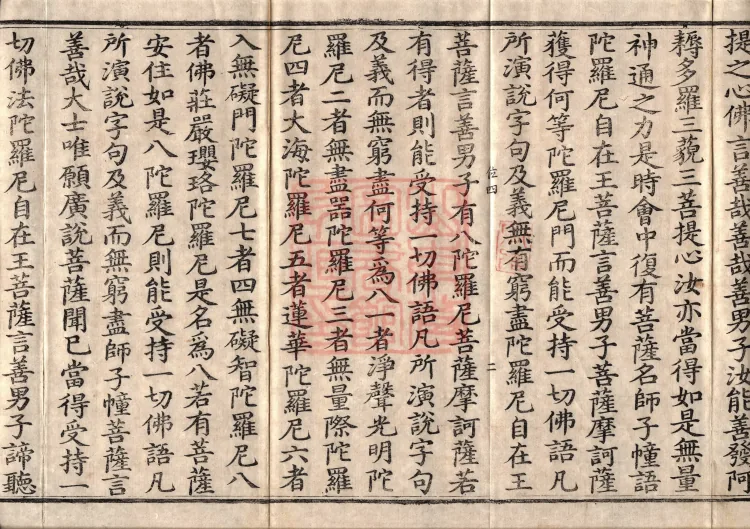 提之心佛言善哉善哉善男子汝能善發阿
耨多羅三藐三菩提心汝亦當得如是無量
神通之力是時會中復有菩薩名師子幢語
陀羅尼自在王菩薩言善男子菩薩摩訶薩
獲得何等陀羅尼門而能受持一切佛語凡
所演說字句及義無有窮盡陀羅尼自在王
位四
二
菩薩言善男子有八陀羅尼菩薩摩訶薩若
有得者則能受持一切佛語凡所演說字句
及義而無窮盡何等爲八一者淨聲光明陀
羅尼二者無盡器陀羅尼三者無量際陀羅
尼四者大海陀羅尼五者蓮華陀羅尼六者
入無礙門陀羅尼七者四無礙智陀羅尼八
者佛莊嚴瓔珞陀羅尼是名爲八若有菩薩
安住如是八陀羅尼則能受持一切佛語凡
所演說字句及義而無窮盡師子幢菩薩言
善哉大士唯願廣說菩薩聞已當得受持一
切佛法陀羅尼自在王菩薩言善男子諦聽